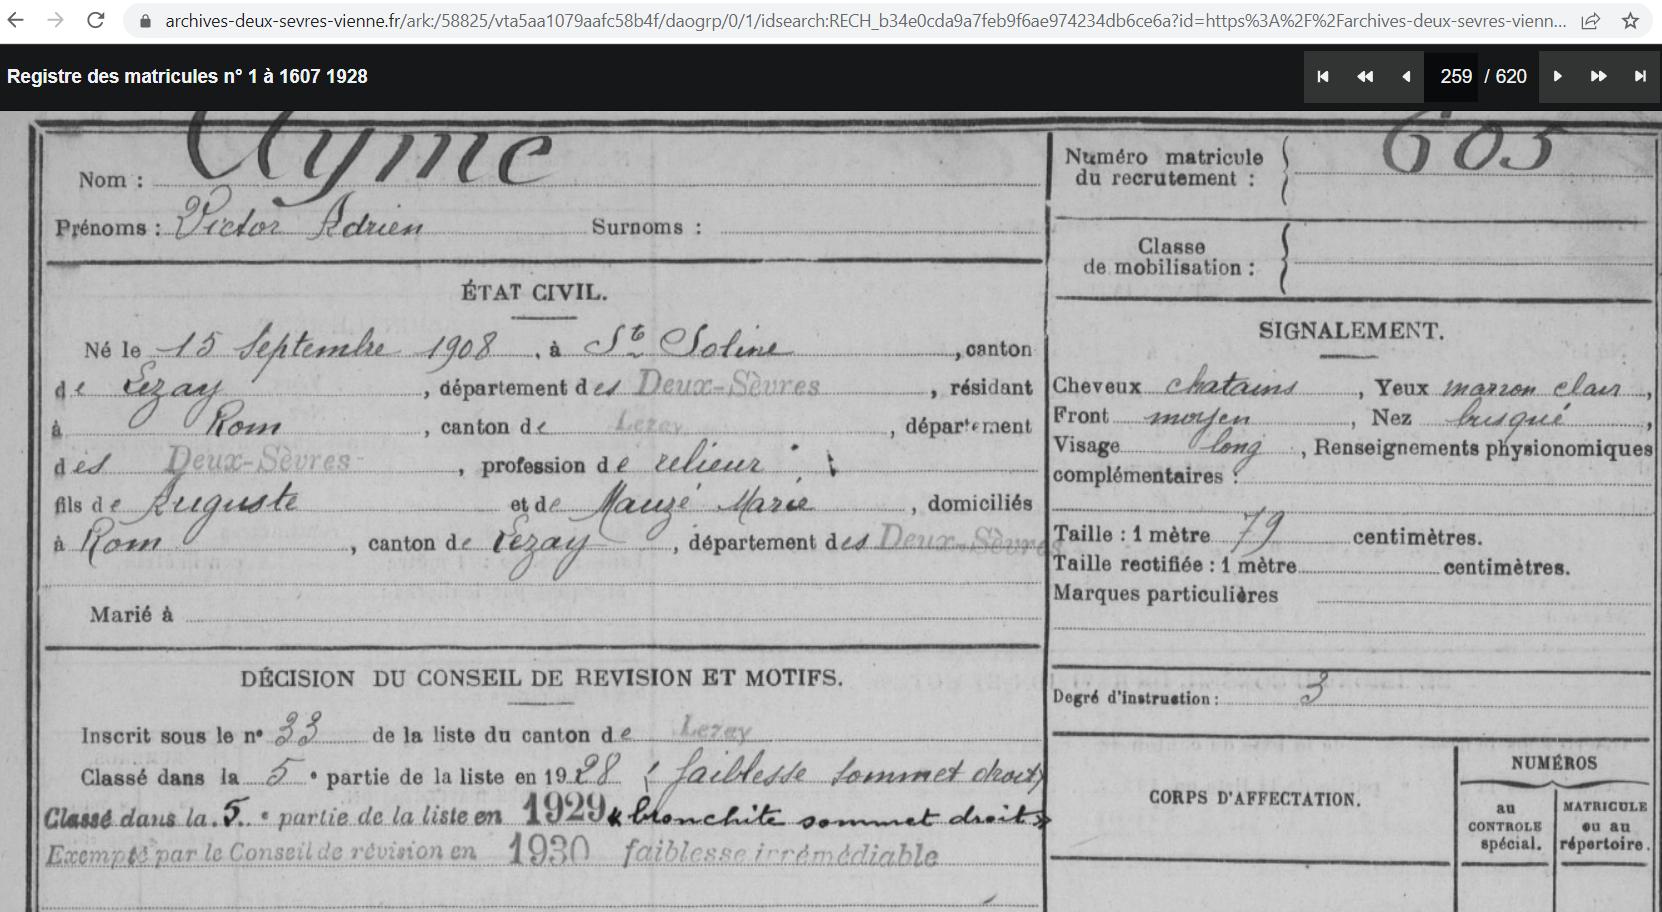 archives-deux-sevres-vienne.fr/ark:/58825/vta5aa1079aafc58b4f/daogrp/0/1/idsearch:RECH_b34e0cda9a7feb9f6ae974234db6ce6a?id=https%3A%2F%2Farchives-deux-sevres-vienn...
Registre des matricules n° 1 à 1607 1928
259 / 620
Nom : Ayme
Prénoms : Victor Adrien Surnoms :
ÉTAT CIVIL.
Né le 15 Septembre 1908, à Ste Soline, canton
de Lezay, département des Deux-Sèvres, résidant
à Rom, canton de Lezay, département
des Deux-Sèvres, profession de relieur
fils de Auguste et de Mauzé Marie, domiciliés
à Rom, canton de Lezay, département des Deux-Sèvres
Marié à
DÉCISION DU CONSEIL DE REVISION ET MOTIFS.
Inscrit sous le n° 33 de la liste du canton de Lezay
Classé dans la 5e partie de la liste en 1928 (faiblesse sommet droit)
Classé dans la 5e partie de la liste en 1929 « bronchite sommet droit »
Exempté par le Conseil de révision en 1930 faiblesse irrémédiable
Numéro matricule
du recrutement : 603
Classe
de mobilisation :
SIGNALEMENT.
Cheveux chatains, Yeux marron clair,
Front moyen, Nez busqué,
Visage long, Renseignements physionomiques
complémentaires :
Taille : 1 mètre 79 centimètres.
Taille rectifiée : 1 mètre centimètres.
Marques particulières
Degré d'instruction : 3
CORPS D'AFFECTATION.
NUMÉROS
au
CONTROLE
spécial.
MATRICULE
ou au
répertoire.